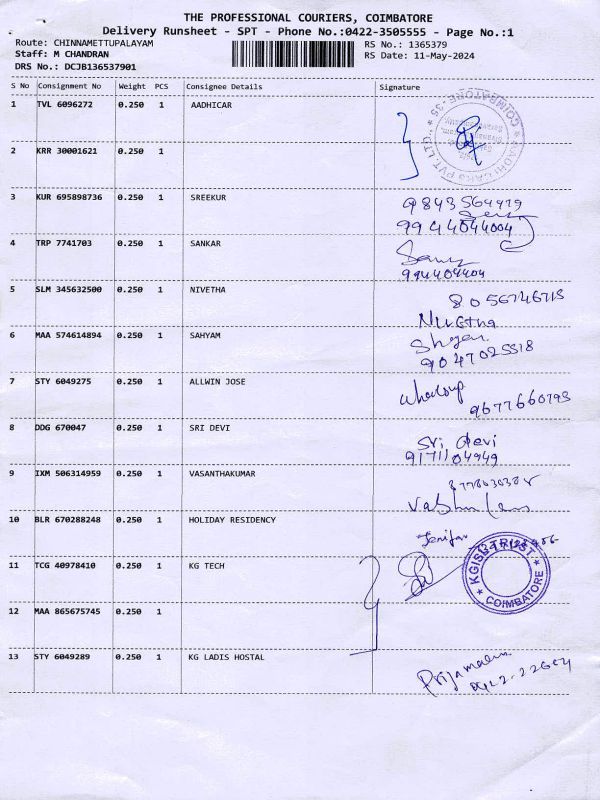 THE PROFESSIONAL COURIERS, COIMBATORE
Delivery Runsheet - SPT - Phone No.:0422-3505555 - Page No.:1
Route: CHINNAMETTUPALAYAM RS No.: 1365379
Staff: M CHANDRAN RS Date: 11-May-2024
DRS No.: DCJB136537901
S No Consignment No Weight PCS Consignee Details Signature
1 TVL 6096272 0.250 1 AADHICAR
2 KRR 30001621 0.250 1
3 KUR 695898736 0.250 1 SREEKUR
9944044004
4 TRP 7741703 0.250 1 SANKAR
994404404
5 SLM 345632500 0.250 1 NIVETHA
8056746715
Nivetha
6 MAA 574614894 0.250 1 SAHYAM
9047025518
7 STY 6049275 0.250 1 ALLWIN JOSE
9677660793
8 DDG 670047 0.250 1 SRI DEVI
Sri devi
9171104949
9 IXM 506314959 0.250 1 VASANTHAKUMAR
10 BLR 670288248 0.250 1 HOLIDAY RESIDENCY
Jenifar
11 TCG 40978410 0.250 1 KG TECH
KGISL TRUST
COIMBATORE
12 MAA 865675745 0.250 1
13 STY 6049289 0.250 1 KG LADIS HOSTAL